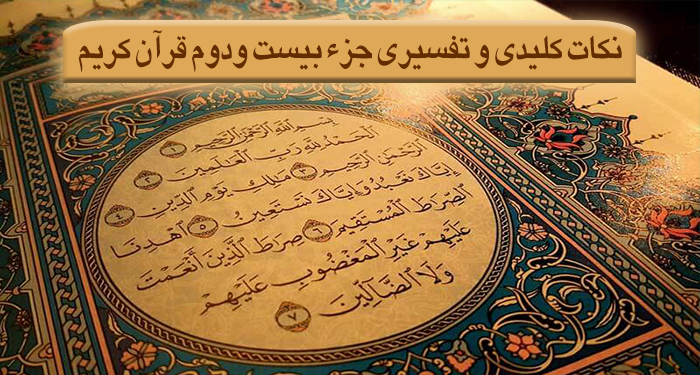 نکات کلیدی و تفسیری جزء بیست ودوم قرآن کریم
بِسْمِ اللَّهِ الرَّحْمَٰنِ الرَّحِيمِ ١
الْحَمْدُ لِلَّهِ رَبِّ الْعَالَمِينَ ٢
الرَّحْمَٰنِ الرَّحِيمِ ٣ مَالِكِ يَوْمِ الدِّينِ ٤
إِيَّاكَ نَعْبُدُ وَإِيَّاكَ نَسْتَعِينُ ٥ اهْدِنَا
الصِّرَاطَ الْمُسْتَقِيمَ ٦ صِرَاطَ الَّذِينَ أَنْعَمْتَ
عَلَيْهِمْ غَيْرِ الْمَغْضُوبِ عَلَيْهِمْ
وَلَا الضَّالِّينَ ٧